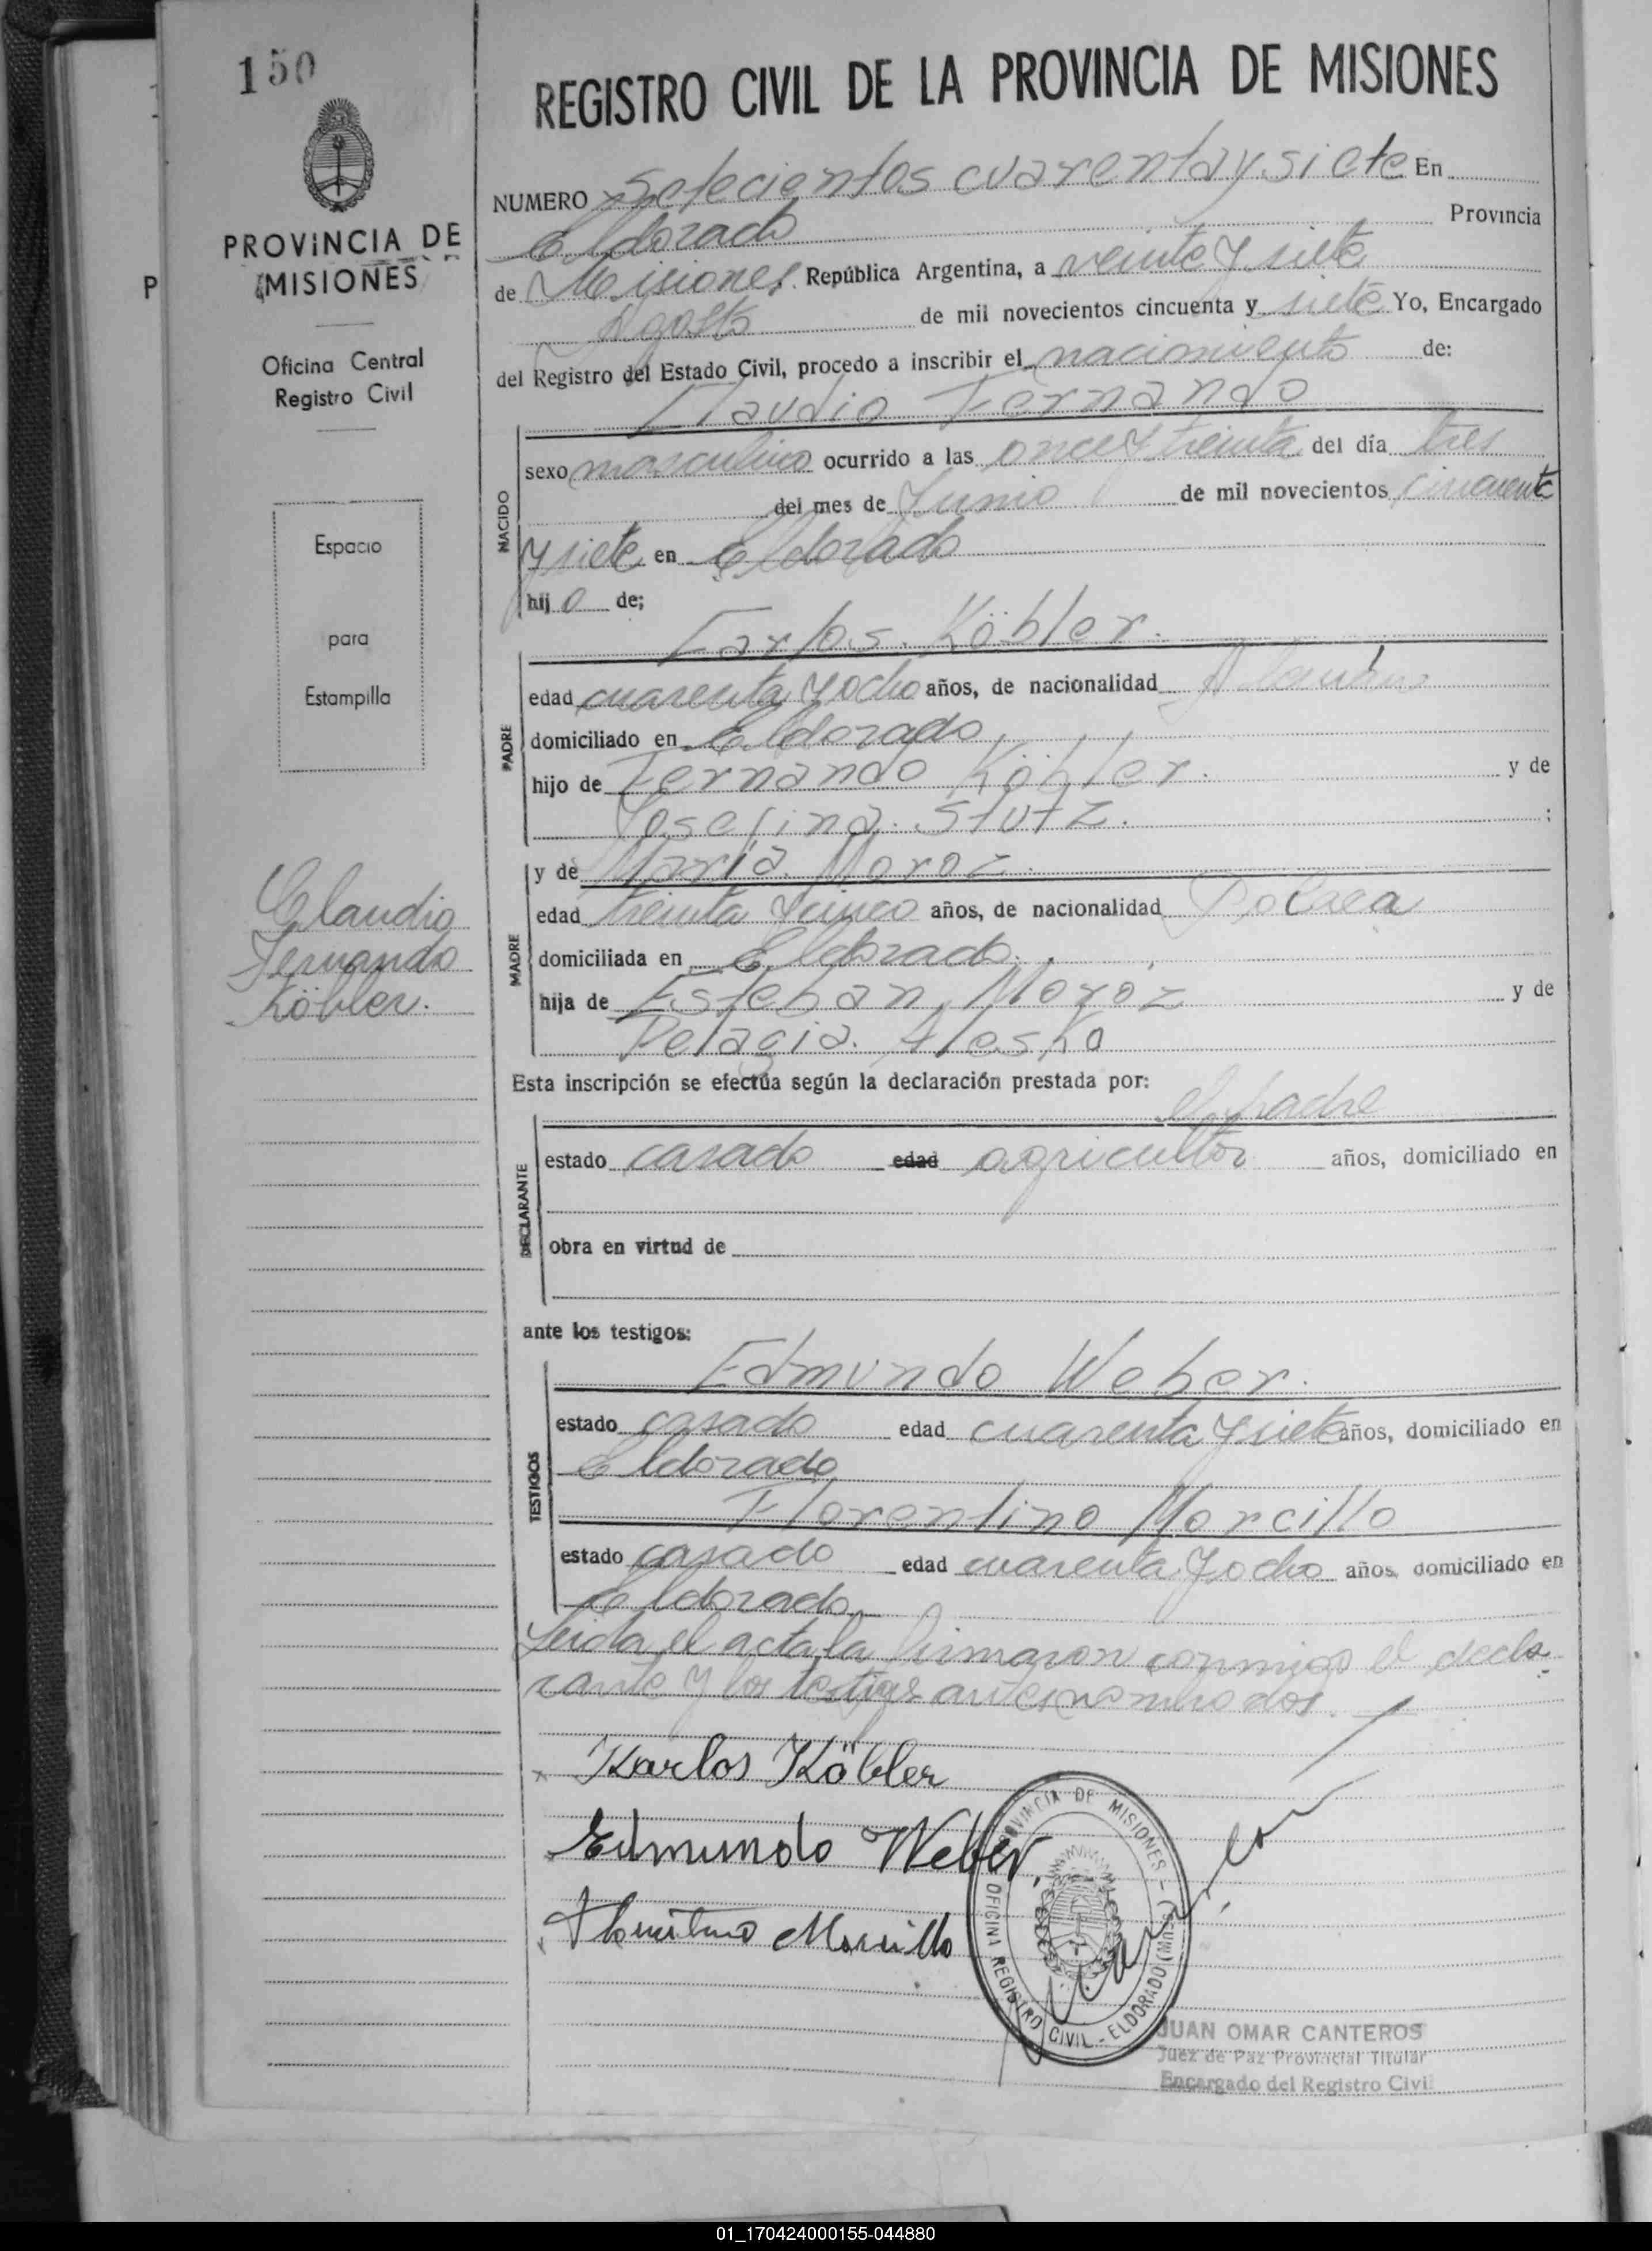 150
PROVINCIA DE
MISIONES
Oficina Central
Registro Civil
Espacio
para
Estampilla
Claudio
Fernando
Köbler.
P
REGISTRO CIVIL DE LA PROVINCIA DE MISIONES
NUMERO Setecientos cuarenta y siete En
Eldorado Provincia
de Misiones República Argentina, a veinte y siete
Agosto de mil novecientos cincuenta y siete Yo, Encargado
del Registro del Estado Civil, procedo a inscribir el nacimiento de:
Claudio Fernando
NACIDO
sexo masculino ocurrido a las once y treinta del día tres
del mes de Junio de mil novecientos cincuenta
y siete en Eldorado
hijo de;
Carlos Köbler.
PADRE
edad cuarenta y ocho años, de nacionalidad Alemána
domiciliado en Eldorado
hijo de Fernando Köbler. y de
Josefina Stutz. ;
MADRE
y de María Moroz
edad treinta y cinco años, de nacionalidad Polaca
domiciliada en Eldorado.
hija de Esteban Moroz y de
Pelagia Alesko
Esta inscripción se efectúa según la declaración prestada por:
el padre
DECLARANTE
estado casado edad agricultor años, domiciliado en
obra en virtud de
ante los testigos:
Edmundo Weber.
TESTIGOS
estado casado edad cuarenta y siete años, domiciliado en
Eldorado
Florentino Morcillo
estado casado edad cuarenta y ocho años, domiciliado en
Eldorado
Leida el acta la firmaron conmigo el decla
rante y los testigos antes nombrados.
Karlos Köbler
Edmundo Weber
Florentino Morcillo
PROVINCIA DE MISIONES
OFICINA REGISTRO CIVIL - ELDORADO (MNES.)
JUAN OMAR CANTEROS
Juez de Paz Provincial Titular
Encargado del Registro Civil
01_170424000155-044880